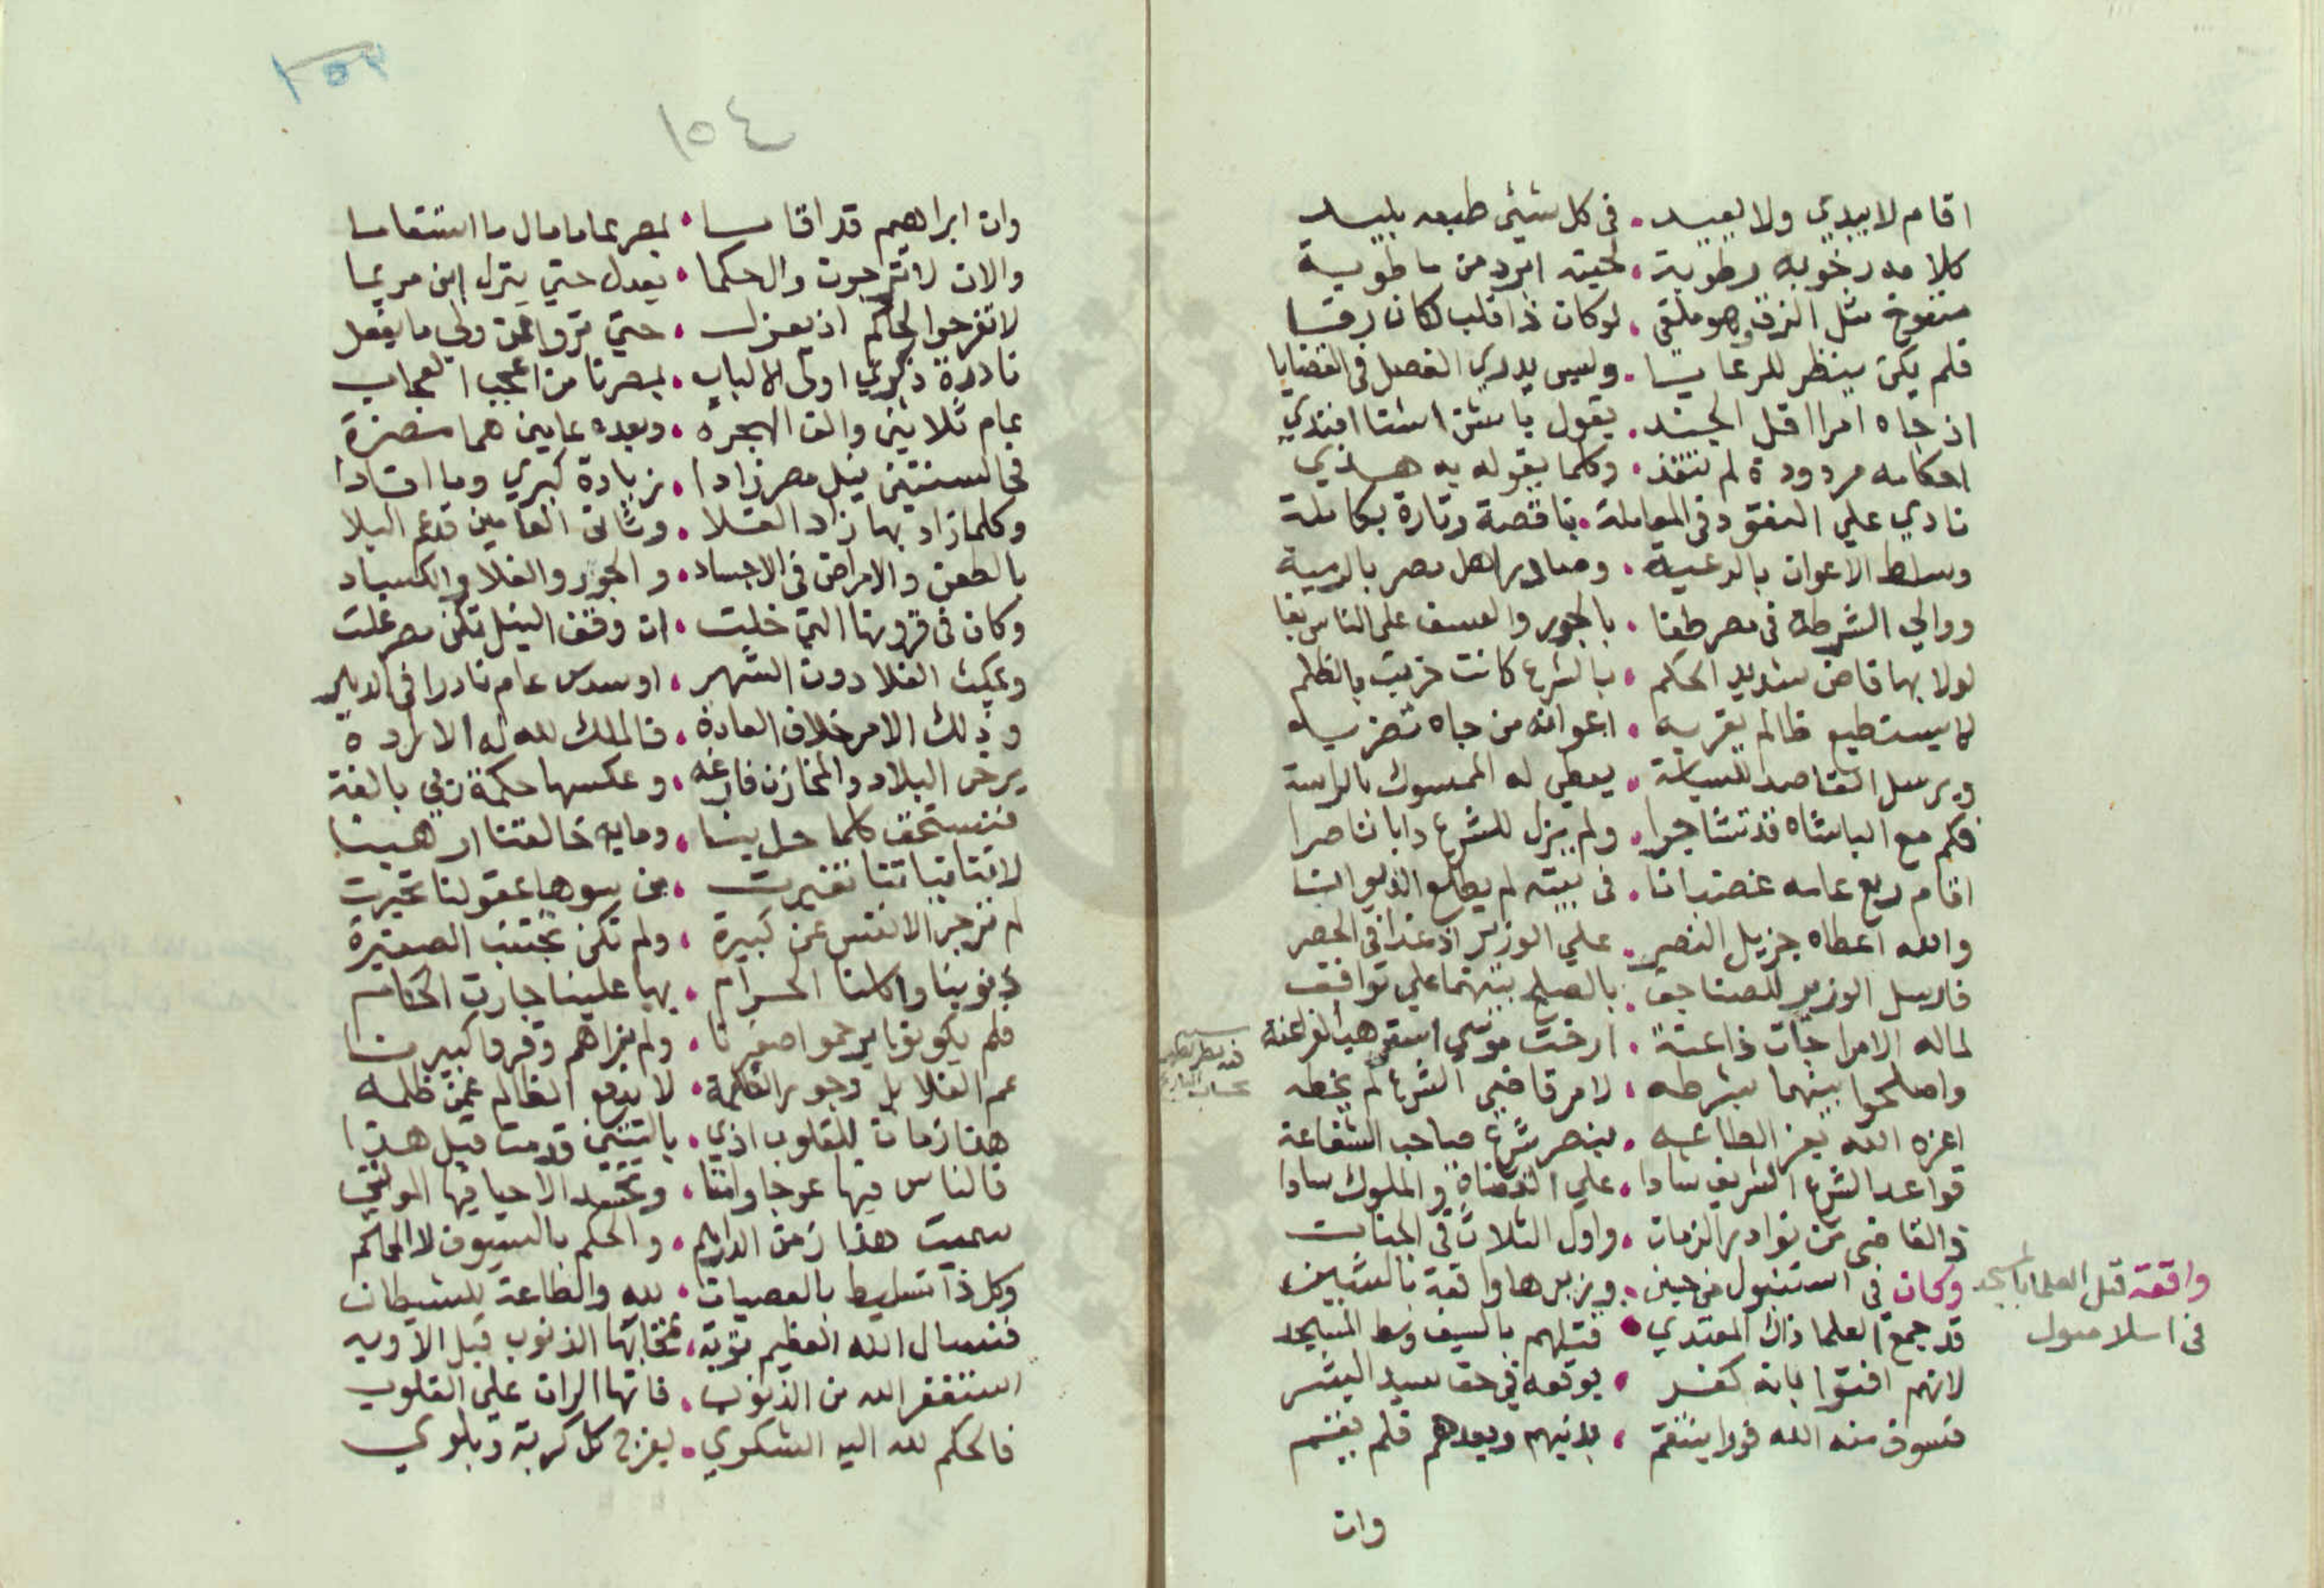 اقام لا يبدي ولا يعيد . في كل شئي طبعه بليد
كلامه رخو به رطوبة . لحيته ابرد من ماطوبة
منفوخ مثل الزق وهو ملقى . لوكان ذا قلب لكان رقا
فلم يكن ينظر للرعايا . وليس يدري الفصل في القضايا
ان جاه امرا اقل الجند . يقول باش اشتا افندي
احكامه مردودة لم تنفذ . وكلما يقوله به هذي
نادي علي النقود في المعاملة . ناقصة وتارة بكاملة
وسلط الاعوان بالرعية . وصادر اهل مصر بالرمية
ووالي الشرطة في مصر طغا . بالجور والعسف على الناس بغا
لولا بها قاض شديد الحكم . بالشرع كانت خربت بالظلم
لا يستطيع ظالم يقربه . اعوانه من جاه تضربه
ويرسل القاصد للسياسة . يعطي له الممسوك بالراسة
فكم مع الباشاه قد تشاجرا . ولم يزل للشرع دابا ناصرا
اقام ربع عامه غضبانا . في بيته لم يطلع الديوانا
والله اعطاه جزيل النصر . علي الوزير اذ غدا في الحصر
فارسل الوزير للصناجق . بالصلح بينهما علي توافق
لماله الامرا جات ذاعنة . ارخت موسي الفراعنة
واصلحوا بينهما بشرطه . لامر قاضي الشرع لم يخطه
اعزه الله بعز الطاعه . ينصر شرع صاحب الشفاعة
قواعد الشرع الشريف شادا . علي القضاة والملوك سادا
ذا القاضي من نوادر الزمان . واول الثلاث في الجنان
وكان في استنبول من حين . وزيرها واقعة بالشين
قد جمع العلما ذاك المعتدي . قتلهم بالسيف وسط المسجد
لانهم افتوا بانه كفر . بوقعه في حق سيد البشر
فسوف منه الله فورا ينتقم . بدنيهم وبعدهم فلم يغنم
وان
واقعة قتل العلما بالمسجد
في اسلامبول
١٥٤
وان ابراهيم قد اقاما . بمصر عاما مال ما استقاما
والان لا ترجون والحكما . يعدل حتي ينزل ابن مريما
لا تفرحوا لحاكم اذ يعزل . حتي تروا من ولي ما يفعل
نادرة ذكري اولي الالباب . بمصرنا من اعجب العجاب
عام ثلاثين والف الهجره . وبعده عامين هما مضرة
في السنتين نيل مصر زادا . زيادة كبري وما افادا
وكلما زاد بها زاد الغلا . وثاني العامين قد عم البلا
بالطعن والامراض في الاجساد . والجور والغلا والكساد
وكان في قرونها التي خلت . ان وقف النيل تكن مصر غلت
ويمكث الغلا دون الشهر . او سدس عام نادرا في الدهر
وذلك الامر خلاف العادة . فالملك لله له الاراده
يرخى البلاد والمخازن فارغه . وعكسها حكمة ربي بالغة
فنستحق كلما حل بنا . وما به خالقنا ارهبنا
لانتا نياتنا تغيرت . من سوها عقولنا تحيرت
لم نزجر الانفس عن كبيرة . ولم تكن تجتنب الصغيرة
ذنوبنا واكلنا الحرام . بها علينا جارت الحكام
فلم يكونوا يرحموا صغيرنا . ولم نراهم وقروا كبيرنا
عم الغلا بل وجور الظلمة . لا يدفع الظالم عمن ظلمه
هذا زمان للقلوب اذي . ياليتني قد مت قبل هذا
فالناس فيها عوجا وامتا . وتحسد الاحيا فيها الموتي
سميت هذا زمن الدراهم . والحكم بالسيوف لا الحاكم
وكل ذا تسليط بالعصيان . لله والطاعة للشيطان
فنسال الله العظيم توبة . تمحا بها الذنوب قبل الاوبه
استغفر الله من الذنوب . فانها الران على القلوب
فالحكم لله اليه الشكوي . يفرج كل كربة وبلوي